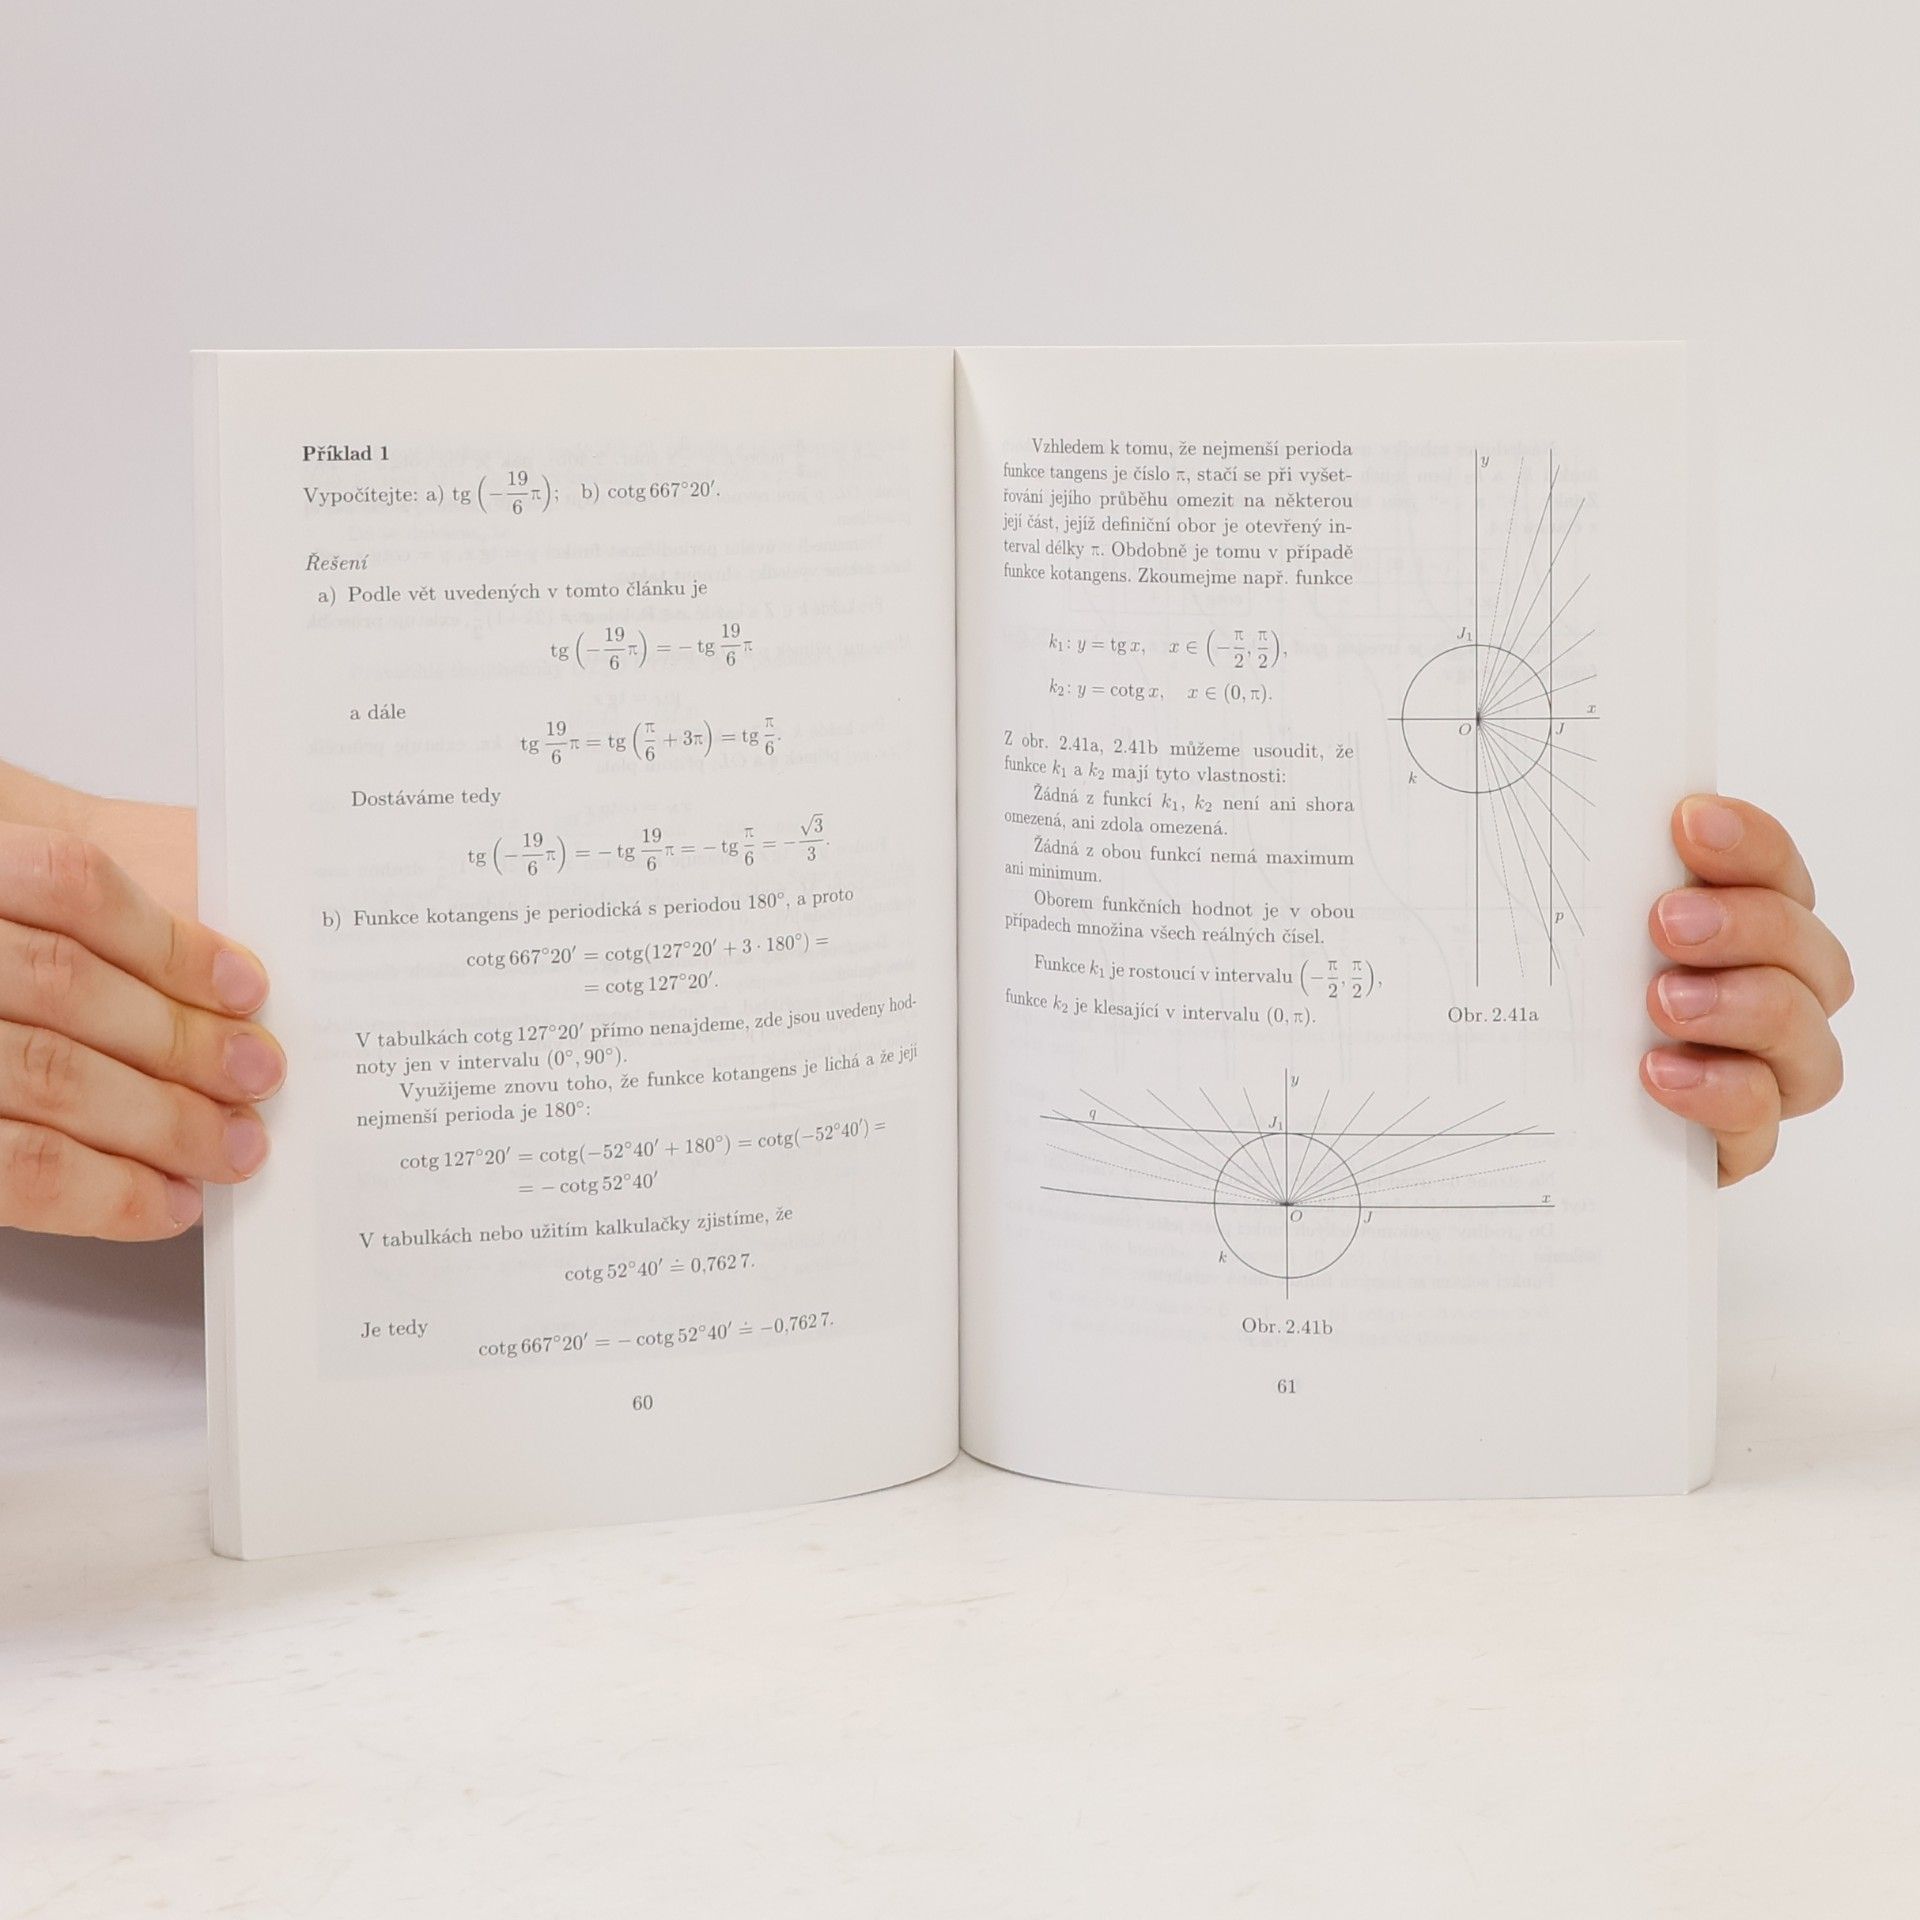 Příklad 1
Vypočítejte: a) tg (−19/6 π); b) cotg 667°20′.
Řešení
a) Podle vět uvedených v tomto článku je
tg (−19/6 π) = − tg 19/6 π
a dále
tg 19/6 π = tg (π/6 + 3π) = tg π/6.
Dostáváme tedy
tg (−19/6 π) = − tg 19/6 π = − tg π/6 = −√3/3.
b) Funkce kotangens je periodická s periodou 180°, a proto
cotg 667°20′ = cotg(127°20′ + 3 · 180°) =
= cotg 127°20′.
V tabulkách cotg 127°20′ přímo nenajdeme, zde jsou uvedeny hod-
noty jen v intervalu (0°, 90°).
Využijeme znovu toho, že funkce kotangens je lichá a že její
nejmenší perioda je 180°:
cotg 127°20′ = cotg(−52°40′ + 180°) = cotg(−52°40′) =
= − cotg 52°40′
V tabulkách nebo užitím kalkulačky zjistíme, že
cotg 52°40′ ≐ 0,762 7.
Je tedy
cotg 667°20′ = − cotg 52°40′ ≐ −0,762 7.
60
Vzhledem k tomu, že nejmenší perioda
funkce tangens je číslo π, stačí se při vyšet-
řování jejího průběhu omezit na některou
její část, jejíž definiční obor je otevřený in-
terval délky π. Obdobně je tomu v případě
funkce kotangens. Zkoumejme např. funkce
k₁: y = tg x, x ∈ (−π/2, π/2),
k₂: y = cotg x, x ∈ (0, π).
Z obr. 2.41a, 2.41b můžeme usoudit, že
funkce k₁ a k₂ mají tyto vlastnosti:
Žádná z funkcí k₁, k₂ není ani shora
omezená, ani zdola omezená.
Žádná z obou funkcí nemá maximum
ani minimum.
Oborem funkčních hodnot je v obou
případech množina všech reálných čísel.
Funkce k₁ je rostoucí v intervalu (−π/2, π/2),
funkce k₂ je klesající v intervalu (0, π).
y
J₁
x
O
J
k
p
Obr. 2.41a
y
q
J₁
x
O
J
k
Obr. 2.41b
61